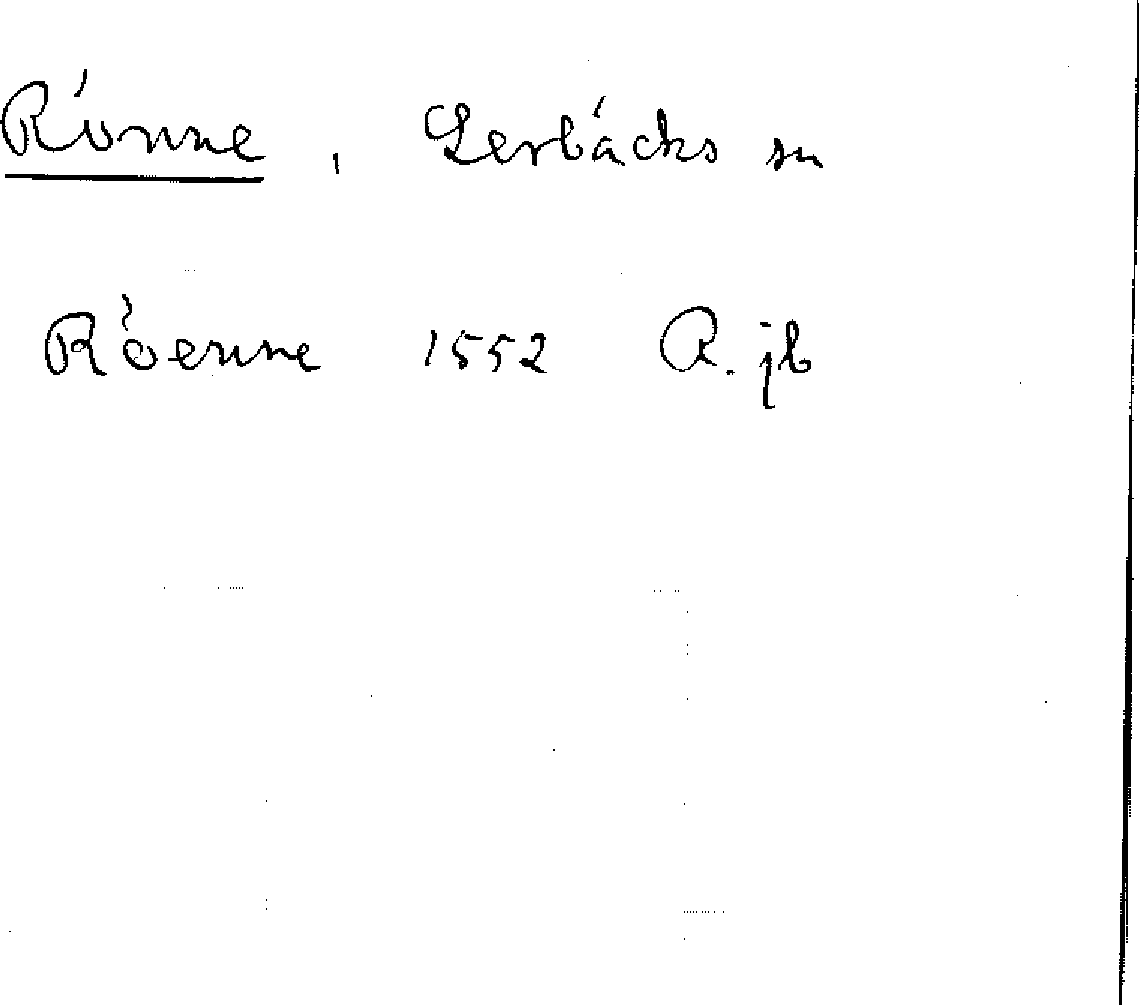 Rönne, Lerbäcks sn
Röenne 1552 R. jb